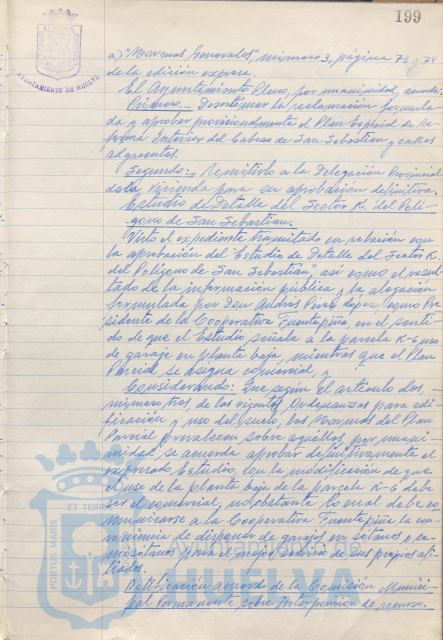 199
AYUNTAMIENTO DE HUELVA
a) "Normas Generales", número 3, página 73 y 74
de la edición expresa.
El Ayuntamiento Pleno, por unanimidad, acuerda:
Primero.- Desestimar la reclamación formula-
da y aprobar provisionalmente el Plan Especial de Re-
forma Interior del Cabezo de San Sebastian y calles
adyacentes.
Segundo:- Remitirlo a la Delegación Provincial
de la Vivienda para su aprobación definitiva.
Estudio de Detalle del Sector K del Polí-
gono de San Sebastian.
Visto el expediente tramitado en relación con
la aprobación del Estudio de Detalle del Sector K
del Polígono de San Sebastian", así como el resul-
tado de la información pública y la alegación
formulada por Don Andrés Pérez López como Pre-
sidente de la Cooperativa Fuentepiña, en el senti-
do de que el Estudio señala a la parcela K-6 uso
de garaje en planta baja, mientras que el Plan
Parcial se asigna comercial, y
Considerando: Que según el artículo dos,
número tres, de las vigentes Ordenanzas para edi-
ficación y uso del suelo, las Normas del Plan
Parcial prevalecen sobre aquellos, por unani-
midad se acuerda aprobar definitivamente el
expresado Estudio, con la modificación de que
el uso de la planta baja de la parcela K-6 debe
ser el comercial, no obstante lo cual debe co-
municarse a la Cooperativa Fuentepiña la con-
veniencia de disponer de garajes en sótanos o se-
misótanos para el mejor servicio de sus propios afi-
liados.
Ratificación acuerdo de la Comisión Munici-
pal Permanente sobre interposición de recurso.
PORTUS MARIS
ET TERRE
HUELVA